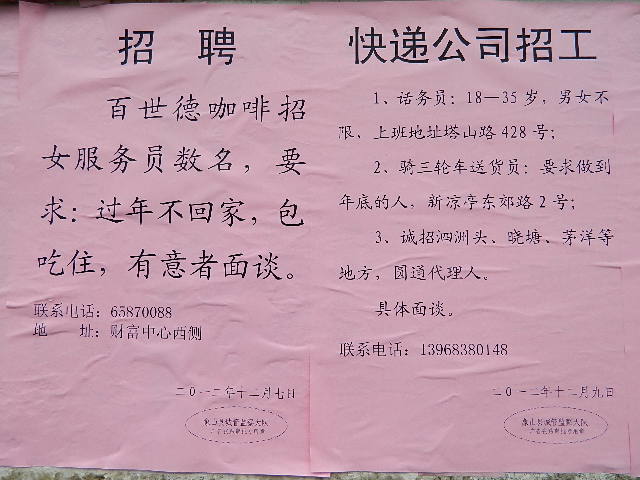 招聘
百世德咖啡招
女服务员数名，要
求：过年不回家，包
吃住，有意者面谈。
联系电话：65870088
地 址：财富中心西侧
二〇一二年十二月七日
象山县城管监察大队
快递公司招工
1、话务员：18—35岁，男女不
限，上班地址塔山路428号；
2、骑三轮车送货员：要求做到
年底的人，新凉亭东郊路2号；
3、诚招泗洲头、晓塘、茅洋等
地方，圆通代理人。
具体面谈。
联系电话：13968380148
二〇一二年十二月九日
象山县城管监察大队